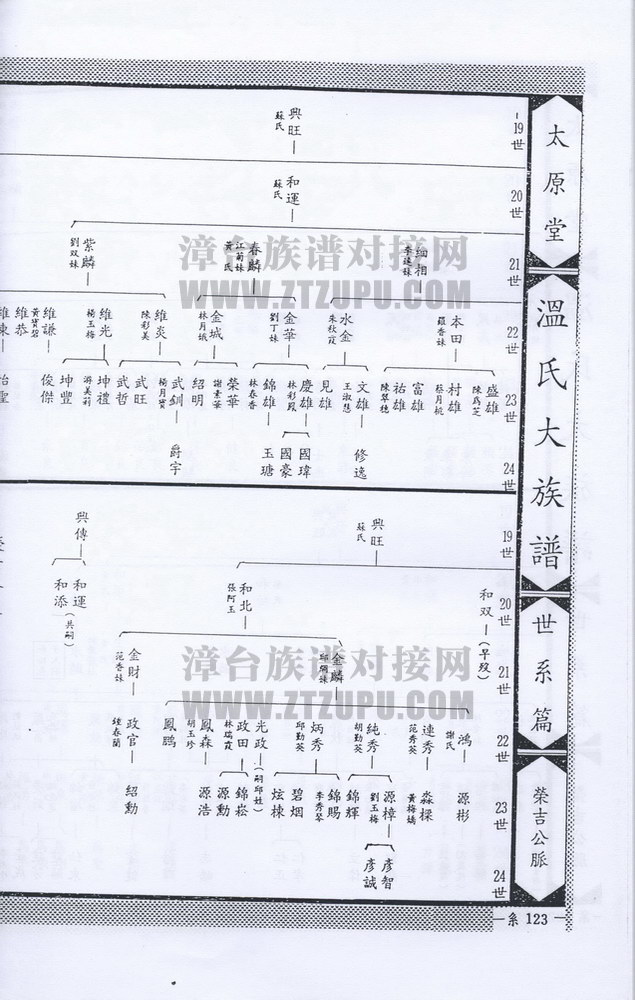 太原堂
溫氏大族譜
世系篇
榮吉公脈
19世
興旺
蘇氏
20世
和運
蘇氏
21世
細相
李違妹
春麟
江菊妹
黃氏
紫麟
劉双妹
漳台族谱对接网
WWW.ZTZUPU.COM
22世
本田
羅香妹
水金
朱秋霞
金華
劉丁妹
金城
林月娥
維炎
陳彩美
維光
楊玉梅
維謙
黃寶碧
維恭
23世
盛雄
陳為芝
村雄
蔡月桃
富雄
祐雄
陳翠穗
文雄
王淑慧
見雄
慶雄
林彩鳳
錦雄
林春香
榮華
謝素華
紹明
武釧
楊月寶
武旺
武哲
坤禮
游美莉
坤豐
俊傑
24世
修逸
國瑋
國豪
玉瑭
爵宇
19世
興旺
蘇氏
興傳
20世
和双
(早歿)
和北
張阿玉
和運
(共嗣)
和添
21世
金麟
邱獨妹
金財
范香妹
漳台族谱对接网
WWW.ZTZUPU.COM
22世
鴻
謝氏
連秀
范秀英
純秀
胡勤英
炳秀
邱勤英
光政
(嗣邱姓)
政田
林瑞霞
鳳森
胡玉珍
鳳鵬
政官
鍾春蘭
23世
源彬
淼樑
黃梅嬌
源樟
劉玉梅
錦輝
錦賜
李秀琴
碧烟
炫棟
錦崧
源勳
源浩
紹勳
24世
彥智
彥誠
系 123